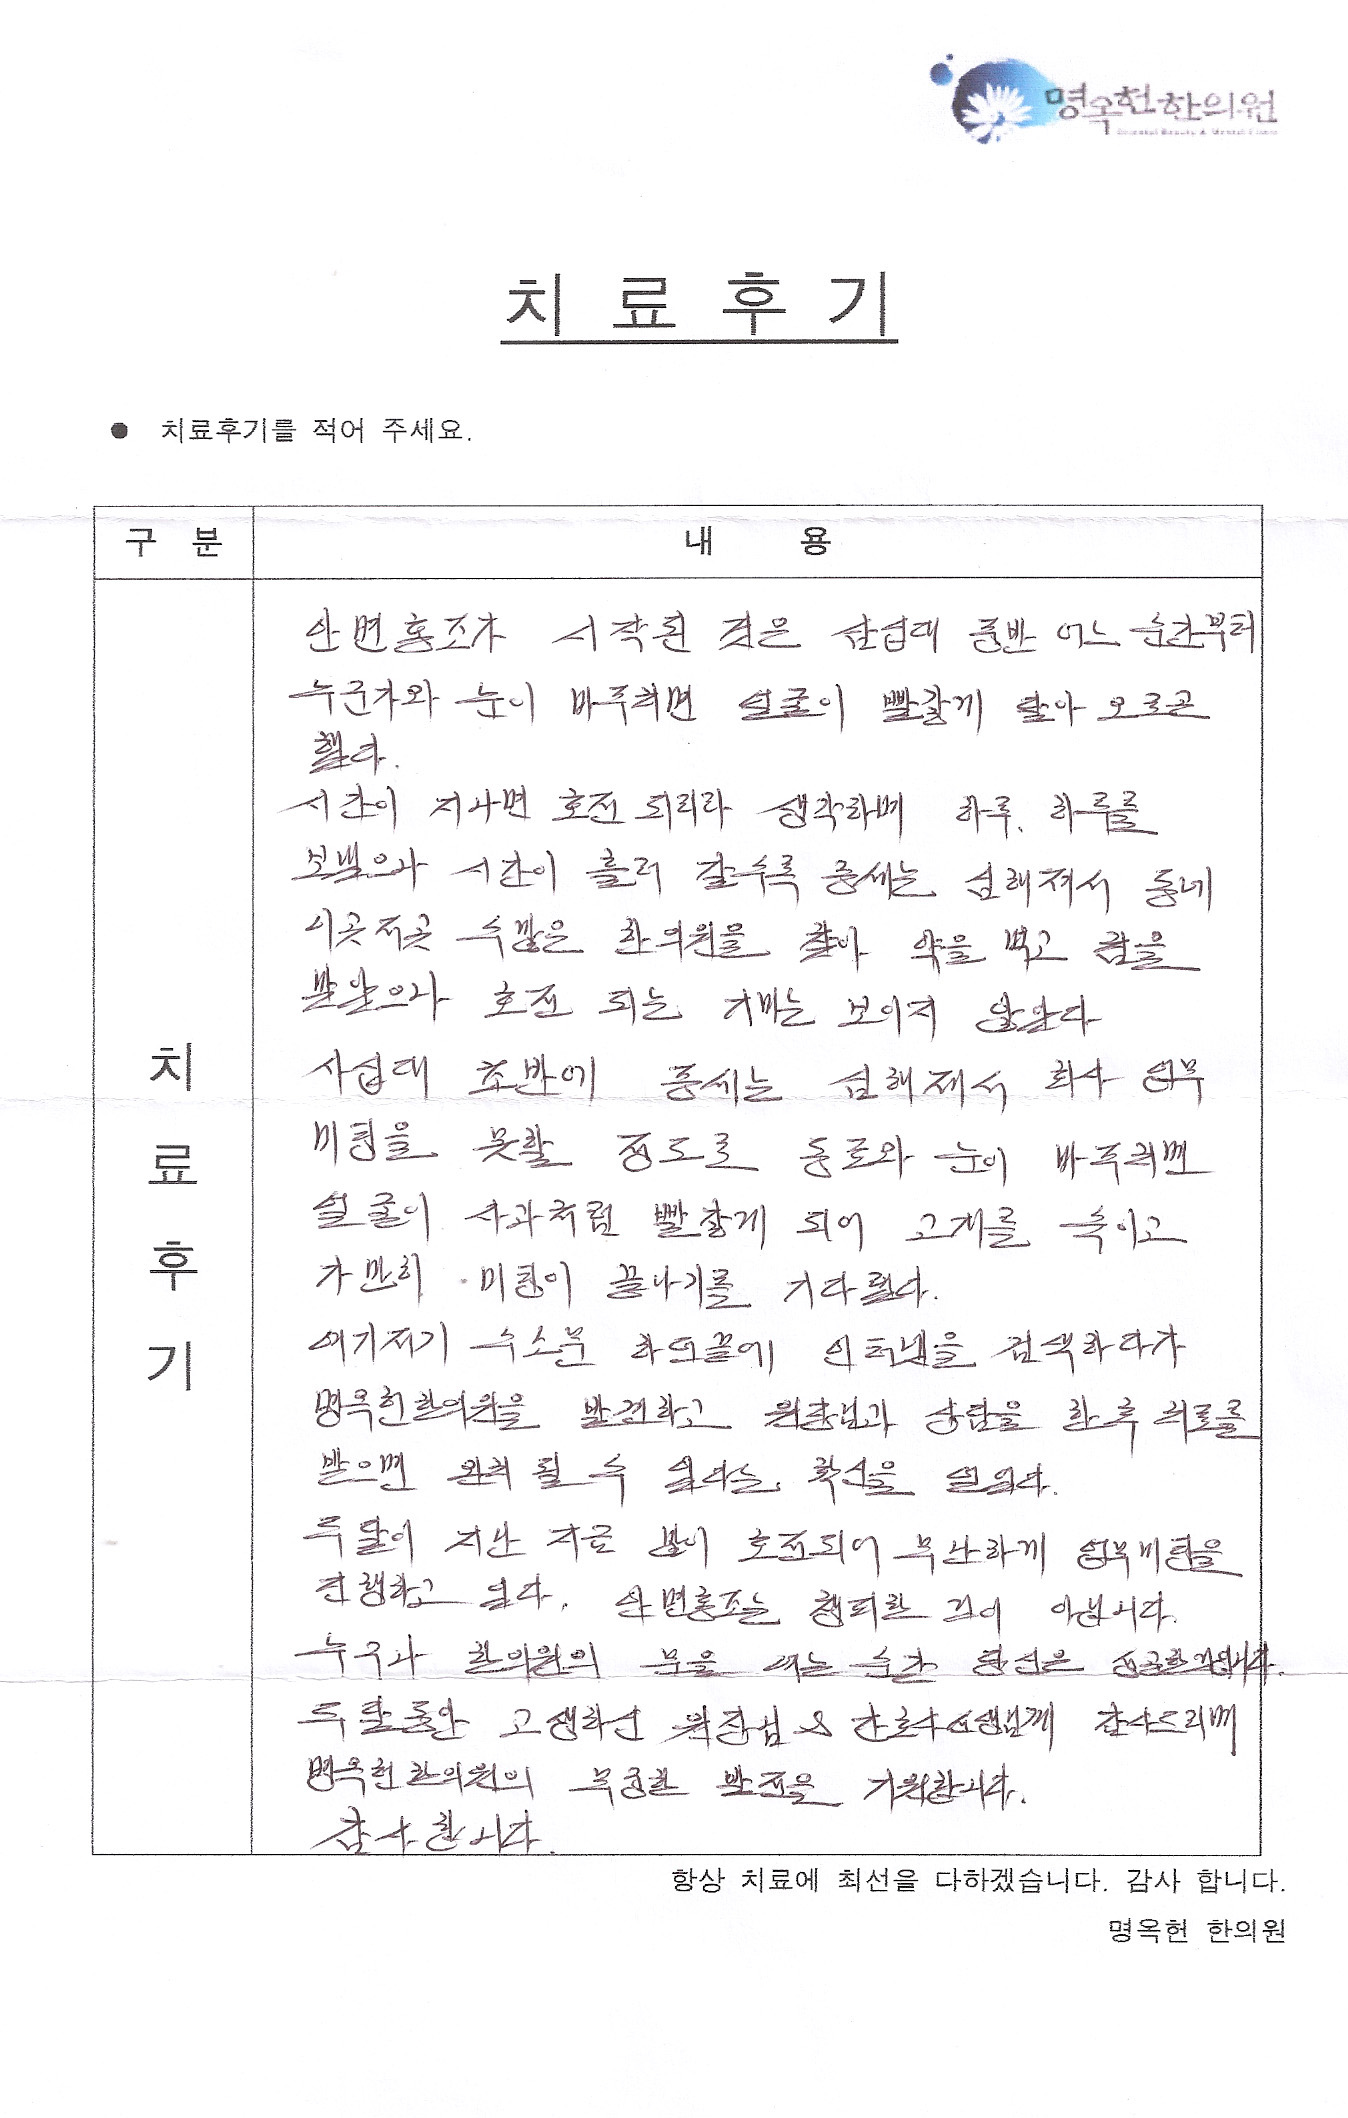 명옥헌한의원
Oriental Beauty & Mental Clinic
치 료 후 기
● 치료후기를 적어 주세요.
구 분
내 용
치료후기
안면홍조가 시작된 것은 삼십대 중반 어느 순간부터
누군가와 눈이 마주치면 얼굴이 빨갛게 달아 오르곤
했다.
시간이 지나면 호전 되리라 생각하며 하루, 하루를
보냈으나 시간이 흘러 갈수록 증세는 심해져서 동네
이곳저곳 수많은 한의원을 찾아 약을 먹고 침을
맞았으나 호전 되는 기미는 보이지 않았다
사십대 초반에 증세는 심해져서 회사 업무
미팅을 못할 정도로 동료와 눈이 마주치면
얼굴이 사과처럼 빨갛게 되어 고개를 숙이고
가만히 미팅이 끝나기를 기다렸다.
여기저기 수소문 하던끝에 인터넷을 검색하다가
명옥헌한의원을 발견하고 원장님과 상담을 한 후 치료를
받으면 완치 될 수 있다는 확신을 얻었다.
두 달이 지난 지금 많이 호전되어 무난하게 업무미팅을
진행하고 있다. 안면홍조는 챙피한 것이 아닙니다.
누구나 한의원의 문을 여는 순간 당신은 성공한겁니다.
두 달동안 고생하신 원장님 & 간호사선생님께 감사드리며
명옥헌한의원의 무궁한 발전을 기원합니다.
감사합니다.
항상 치료에 최선을 다하겠습니다. 감사 합니다.
명옥헌 한의원